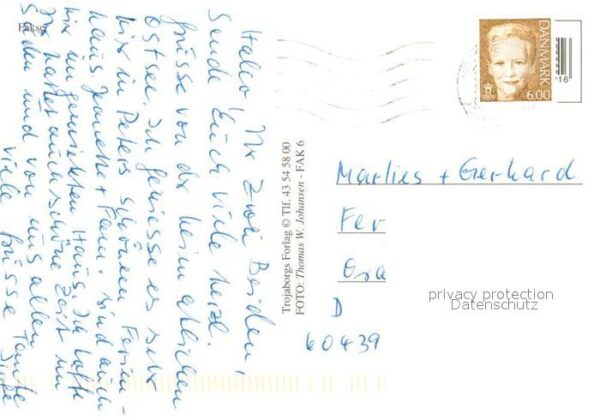 Fakse
Hallo, Ihr zwei Beiden,
sende Euch viele herzl.
Grüsse von der heimatlichen
Ostsee. Ich geniesse es sehr
hier in Peters schönem Ferien-
haus. Jannette + Fam. sind auch
hier im gemieteten Haus. Ich hoffe
Ihr hattet auch schöne Zeit im
Süden und von uns allen
viele Grüsse Tante
Trojaborgs Forlag © Tlf. 43 54 58 00
FOTO: Thomas W. Johansen - FAK 6
DANMARK
6.00
16
Marlies + Gerhard
D
60439
privacy protection
Datenschutz